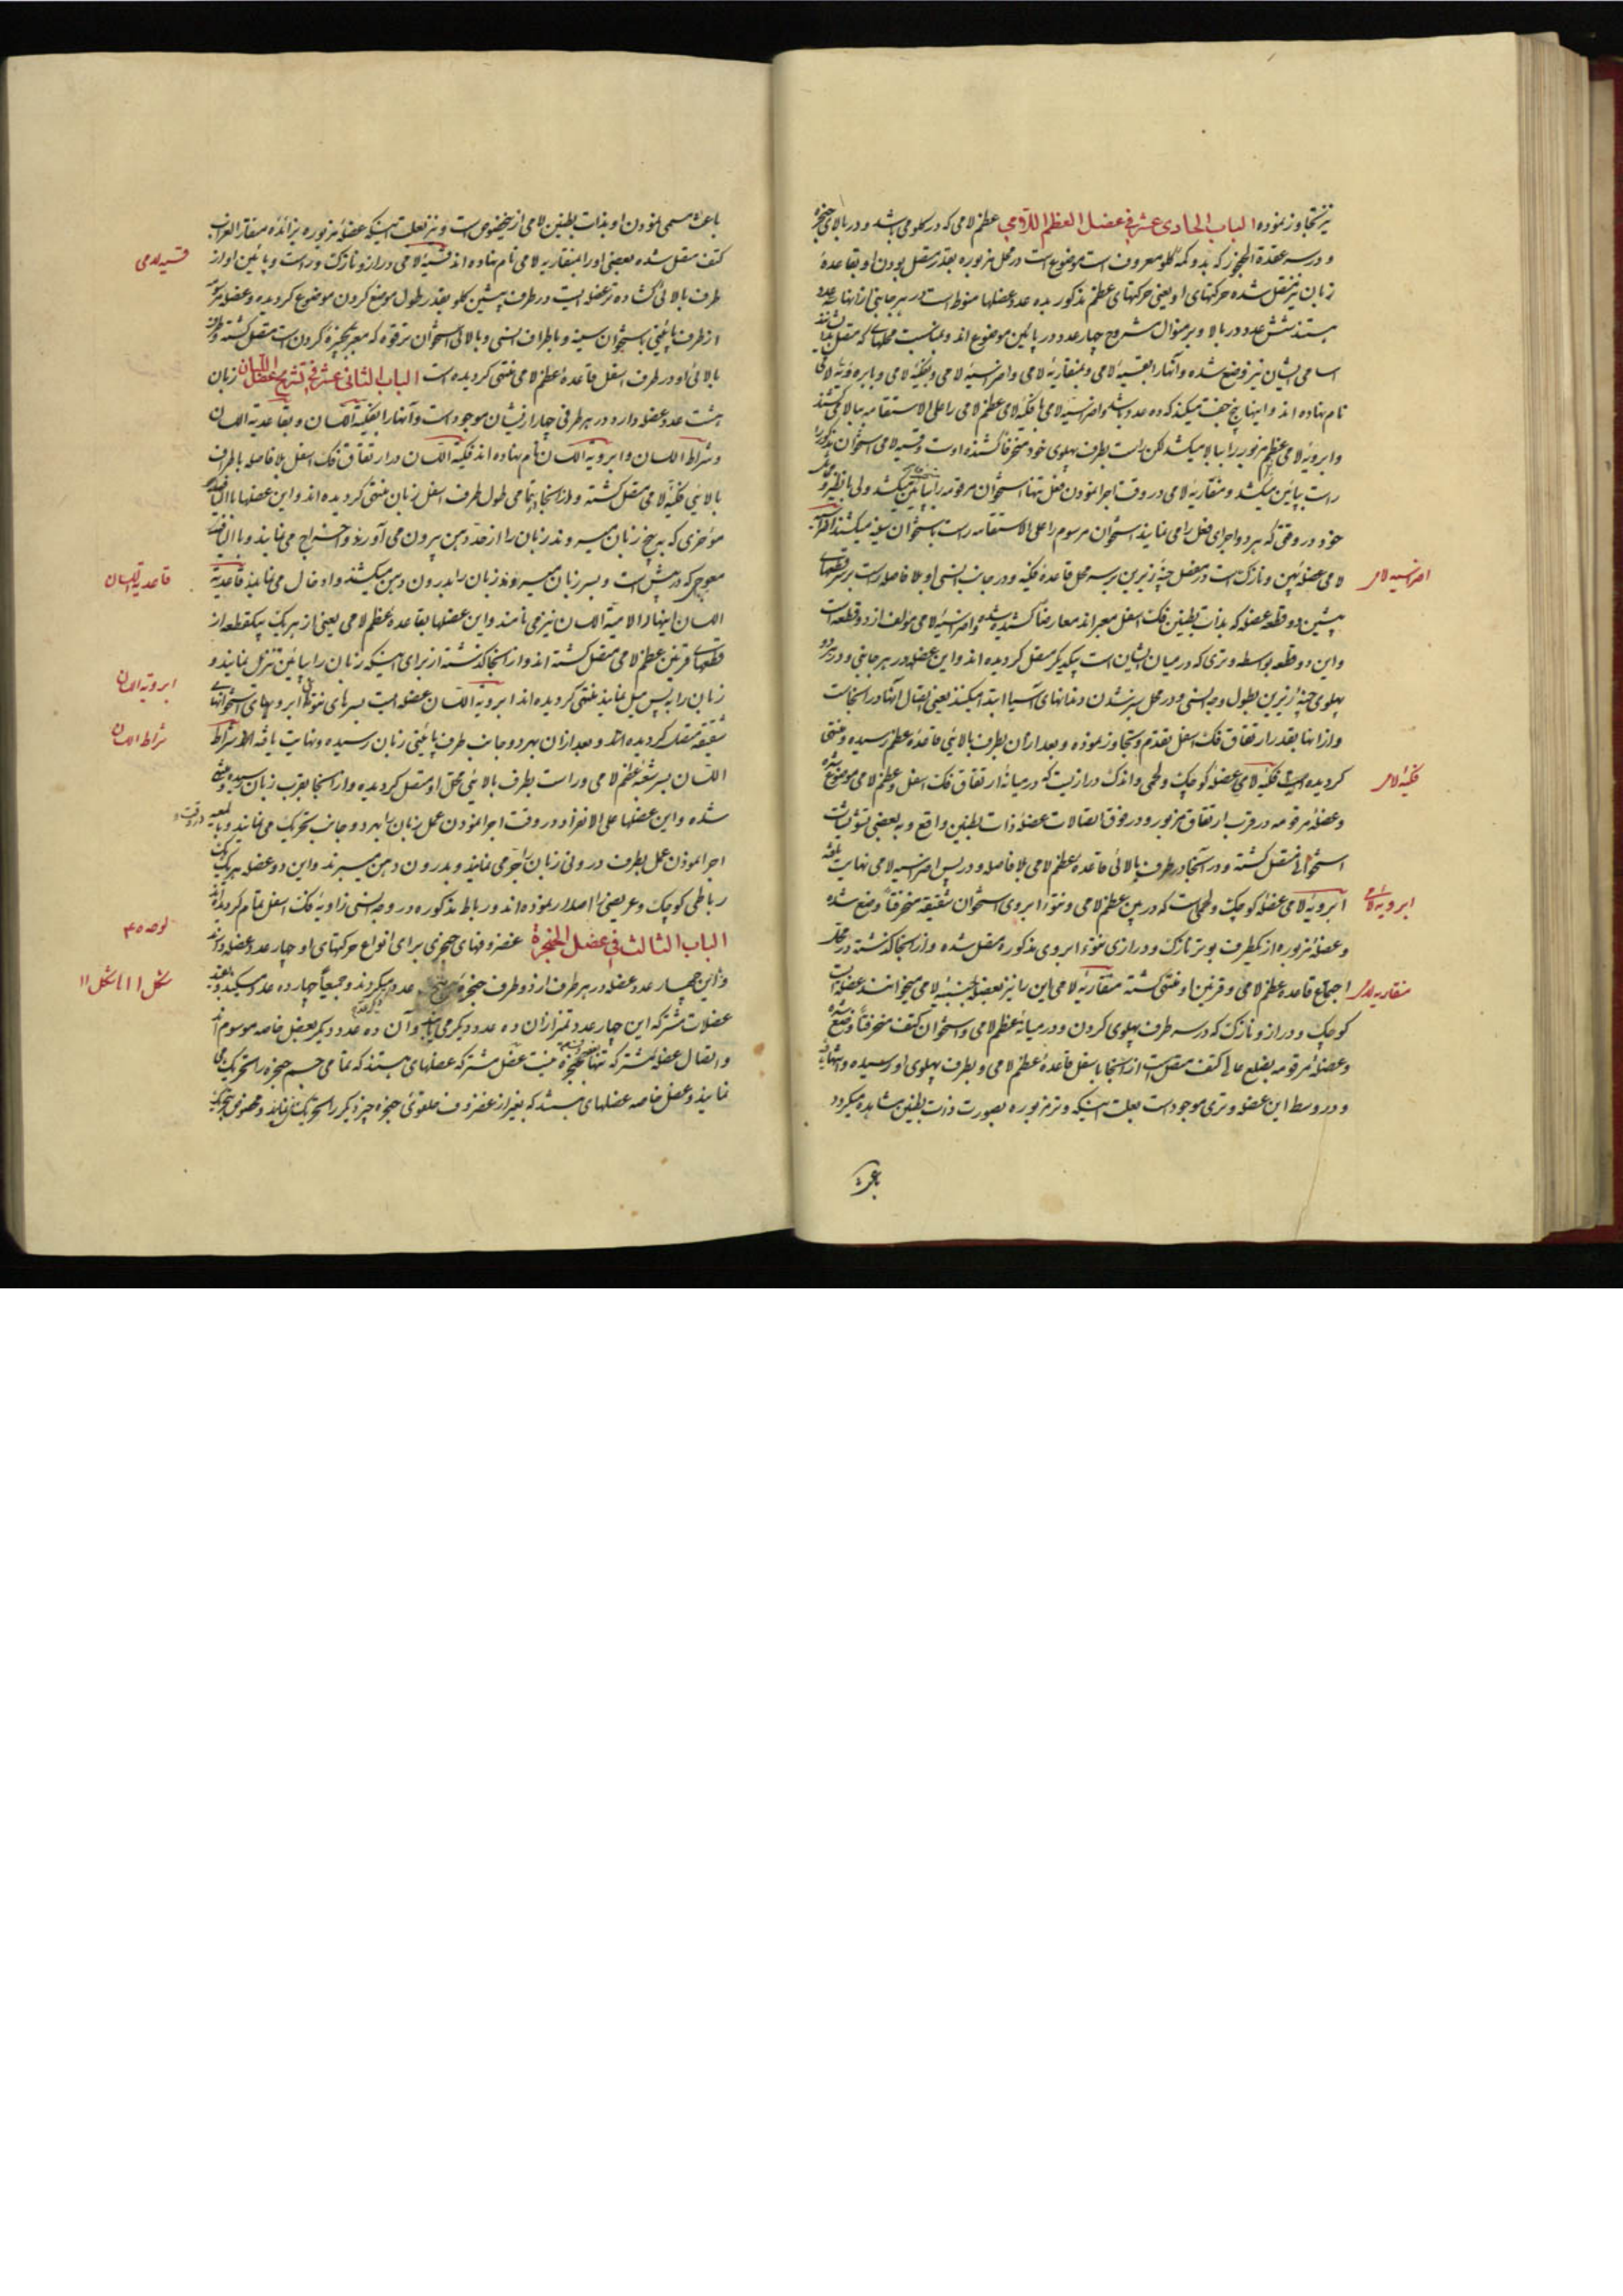 نیز تجاوز نموده الباب الحادی عشر فی عضل العظم اللامی عظم لامی که در گلو می باشد و در بالای حنجره
و در سر عقدة الحنجر که بدوکمه گلو معروف است موضوع است در محل مزبوره بقدر متصل بودن او بقاعدهٔ
زبان نیز متصل شده حرکتهای او یعنی حرکتهای عظم مذکور بده عدد عضلها منوط است در هر جانبی از آنها
هستند شش عدد در بالا و بر منوال مشروح چهار عدد در پائین موضوع اند و بمناسبت محلهای که متصل
اسامی ایشان نیز وضع شده و آنها را بقسیهٔ لامی و بمنقاریهٔ لامی و اضراسیهٔ لامی و بفکیهٔ لامی و بابرویهٔ لامی
نام نهاده اند و اینها پنج جفت میکند که ده عدد باشد و اضراسیهٔ لامی با فکیهٔ لامی عظم لامی را علی الاستقامه ببالا می کشند
و ابرویهٔ لامی عظم مزبور را ببالا میکشد لکن راست بطرف پهلوی خود منحرفاً کشنده اوست و قسیهٔ لامی استخوان مذکور را
راست بپائین میکشد و منقاریهٔ لامی در وقت اجرا نمودن فعل تنها استخوان مرقومه را بپائین میکشد ولی با نظیر
خود در وقتی که هر دو اجرای فعل را می نمایند استخوان مرسوم را علی الاستقامه راست باستخوان سینه میکشند
لامی عضلهٔ پهن و نازک است در مفصل چنهٔ زیرین بر سر محل قاعدهٔ فکیه و در جانب انسی او بلا فاصله راست بر سر قطعهای
پیشین دو قطعه عضله که بذات بطنین فک اسفل معبر اند معارضاً کشیده شده و اضراسیهٔ لامی مؤلف از دو قطعه است
و این دو قطعه بواسطه وتری که در میان ایشان است بیکدیگر متصل گردیده اند و این عضله در هر جانبی و در هر دو
پهلوی چنهٔ زیرین بطول وجه انسی و در محل سبز شدن دندانهای آسیا ابتدا میکنند یعنی اتصال آنها در آنجاست
و از اینها بقدر ارتفاق فک اسفل تقدم و تجاوز نموده و بعد از آن بطرف بالائی قاعدهٔ عظم رسیده و منتهی
گردیده است فکیهٔ لامی عضلهٔ کوچک و لحمی و اندک درازیست که در میانهٔ ارتفاق فک اسفل و عظم لامی موضوع شده
و عضلهٔ مرقومه در قرب ارتفاق مزبور و در فوق اتصالات عضلهٔ ذات بطنین واقع و به بعضی نتوئات
استخوانی متصل گشته و در آنجا در طرف بالائی قاعدهٔ عظم لامی بلا فاصله و در پس اضراسیهٔ لامی نهایت یافته
ابرویهٔ لامی عضلهٔ کوچک و لحمی است که در بین عظم لامی و نتوء ابروی استخوان شقیقه منحرفاً وضع شده
و عضلهٔ مزبوره از یکطرف بوتر نازک و درازی بنتوء ابروی مذکوره متصل شده و از اینجا گذشته در محل
اجتماع قاعدهٔ عظم لامی و قرنین او منتهی گشته منقاریهٔ لامی این را نیز بعضی جنبیهٔ لامی میخوانند عضله ایست
کوچک و دراز و نازک که در سه طرف پهلوی گردن و در میانهٔ عظم لامی و استخوان کتف منحرفاً وضع شده
و عضلهٔ مرقومه بضلع عالی کتف متصل است از اینجا باسفل قاعدهٔ عظم لامی و بطرف پهلوی او رسیده و انتها یافته
و در وسط این عضله وتری موجود است بعلت اینکه وتر مزبوره بصورت ذات بطنین مشاهده میگردد
باعث
اضراسیه لامی
فکیهٔ لامی
ابرویهٔ لامی
منقاریه لامی
باعث مسمی نمودن او بذات بطنین لامی ازین خصوص است و نیز بعلت اینکه عضلهٔ مزبوره بزائدهٔ منقار الغراب
کتف متصل شده بعضی او را بمنقاریه لامی نام نهاده اند قسیهٔ لامی دراز و نازک و راست و پائین او از
طرف بالائی گشاده تر عضله ایست در طرف پیشین گلو بقدر طول موضع گردن موضوع گردیده و عضلهٔ مزبوره
از طرف پائینی باستخوان سینه و باطراف انسی و بالائی استخوان ترقوه که معبر بچنبرهٔ گردن است متصل گشته و طرف
بالائی او در طرف اسفل قاعدهٔ عظم لامی منتهی گردیده است الباب الثانی عشر فی تشریح عضل اللسان زبان
هشت عدد عضله دارد در هر طرفی چهار از ایشان موجود است و آنها را بفکیة اللسان و بقاعدیة اللسان
و شراط اللسان و ابرویة اللسان نام نهاده اند فکیة اللسان در ارتفاق فک اسفل بلا فاصله باطراف
بالائی فکیهٔ لامی متصل گشته و از اینجا بتمامی طول طرف اسفل زبان منتهی گردیده اند و این عضلها با الیاف
مؤخری که به بیخ زبان میروند زبان را از حد دهن بیرون می آورند و اخراج می نمایند و با الیاف
معوجی که در پیش است و بسر زبان میروند زبان را بدرون دهن میکشند و ادخال می نمایند قاعدیة
اللسان اینها را لامیة اللسان نیز می نامند و این عضلها بقاعدهٔ عظم لامی یعنی از هر یک بیکقطعه از
قطعهای قرنین عظم لامی متصل گشته اند و از اینجا گذشته از برای اینکه زبان را بپائین تنزل نمایند و
زبان را به پس میل نمایند منتهی گردیده اند ابرویة اللسان عضله ایست بسرهای نتوء ابرویهای استخوانهای
شقیقه متصل گردیده اند و بعد از آن بهر دو جانب طرف پائینی زبان رسیده و نهایت یافته اند شراط
اللسان بسر شعبهٔ عظم لامی و راست بطرف بالائی محل او متصل گردیده و از اینجا بقرب زبان رسیده منتهی
شده و این عضلها علی الانفراد در وقت اجرا نمودن عمل زبان را بهر دو جانب تحریک می نمایند و بالمعیه
اجرا نمودن عمل بطرف درونی زبان را جر می نمایند و بدرون دهن میبرند و این دو عضله بهر یک
رباطی کوچک و عریضی را اصدار نموده اند و رباط مذکوره در وجه انسی زاویهٔ فک اسفل تمام گردیده اند
الباب الثالث فی عضل الحنجرة غضروفهای حنجری برای انواع حرکتهای او چهار عدد عضله دارند
و این چهار عدد عضله در هر طرف از دو طرف حنجره عدد میگردند و جمیعاً چهارده عدد میکنند
عضلات مشترکه این چهار عدد تمیز از آن ده عدد دیگر می باشد و آن ده عدد دیگر بعضل خاصه موسوم اند
و اتصال عضلهٔ مشترکه تنها بحنجره نیست عضل مشترکه عضلهای هستند که تمامی جسم حنجره را تحریک می
نمایند و عضل خاصه عضلهای هستند که بغیر از غضروف حلقومی حنجره چیز دیگر را تحریک نمی نمایند
قسیه لامی
قاعدیة اللسان
ابرویة اللسان
شراط اللسان
در وقت
لوحه ۴۰
شکل ۱ الی شکل ۱۱